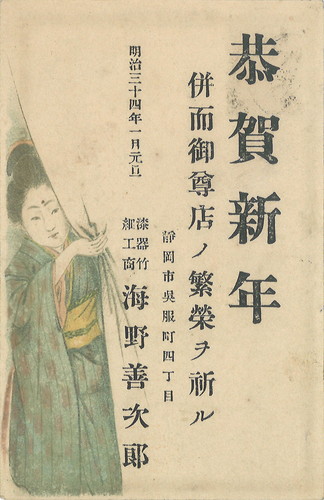 恭賀新年
併而御尊店ノ繁榮ヲ祈ル
明治三十四年一月元旦
靜岡市吳服町四丁目
漆器竹
細工商
海野善次郎